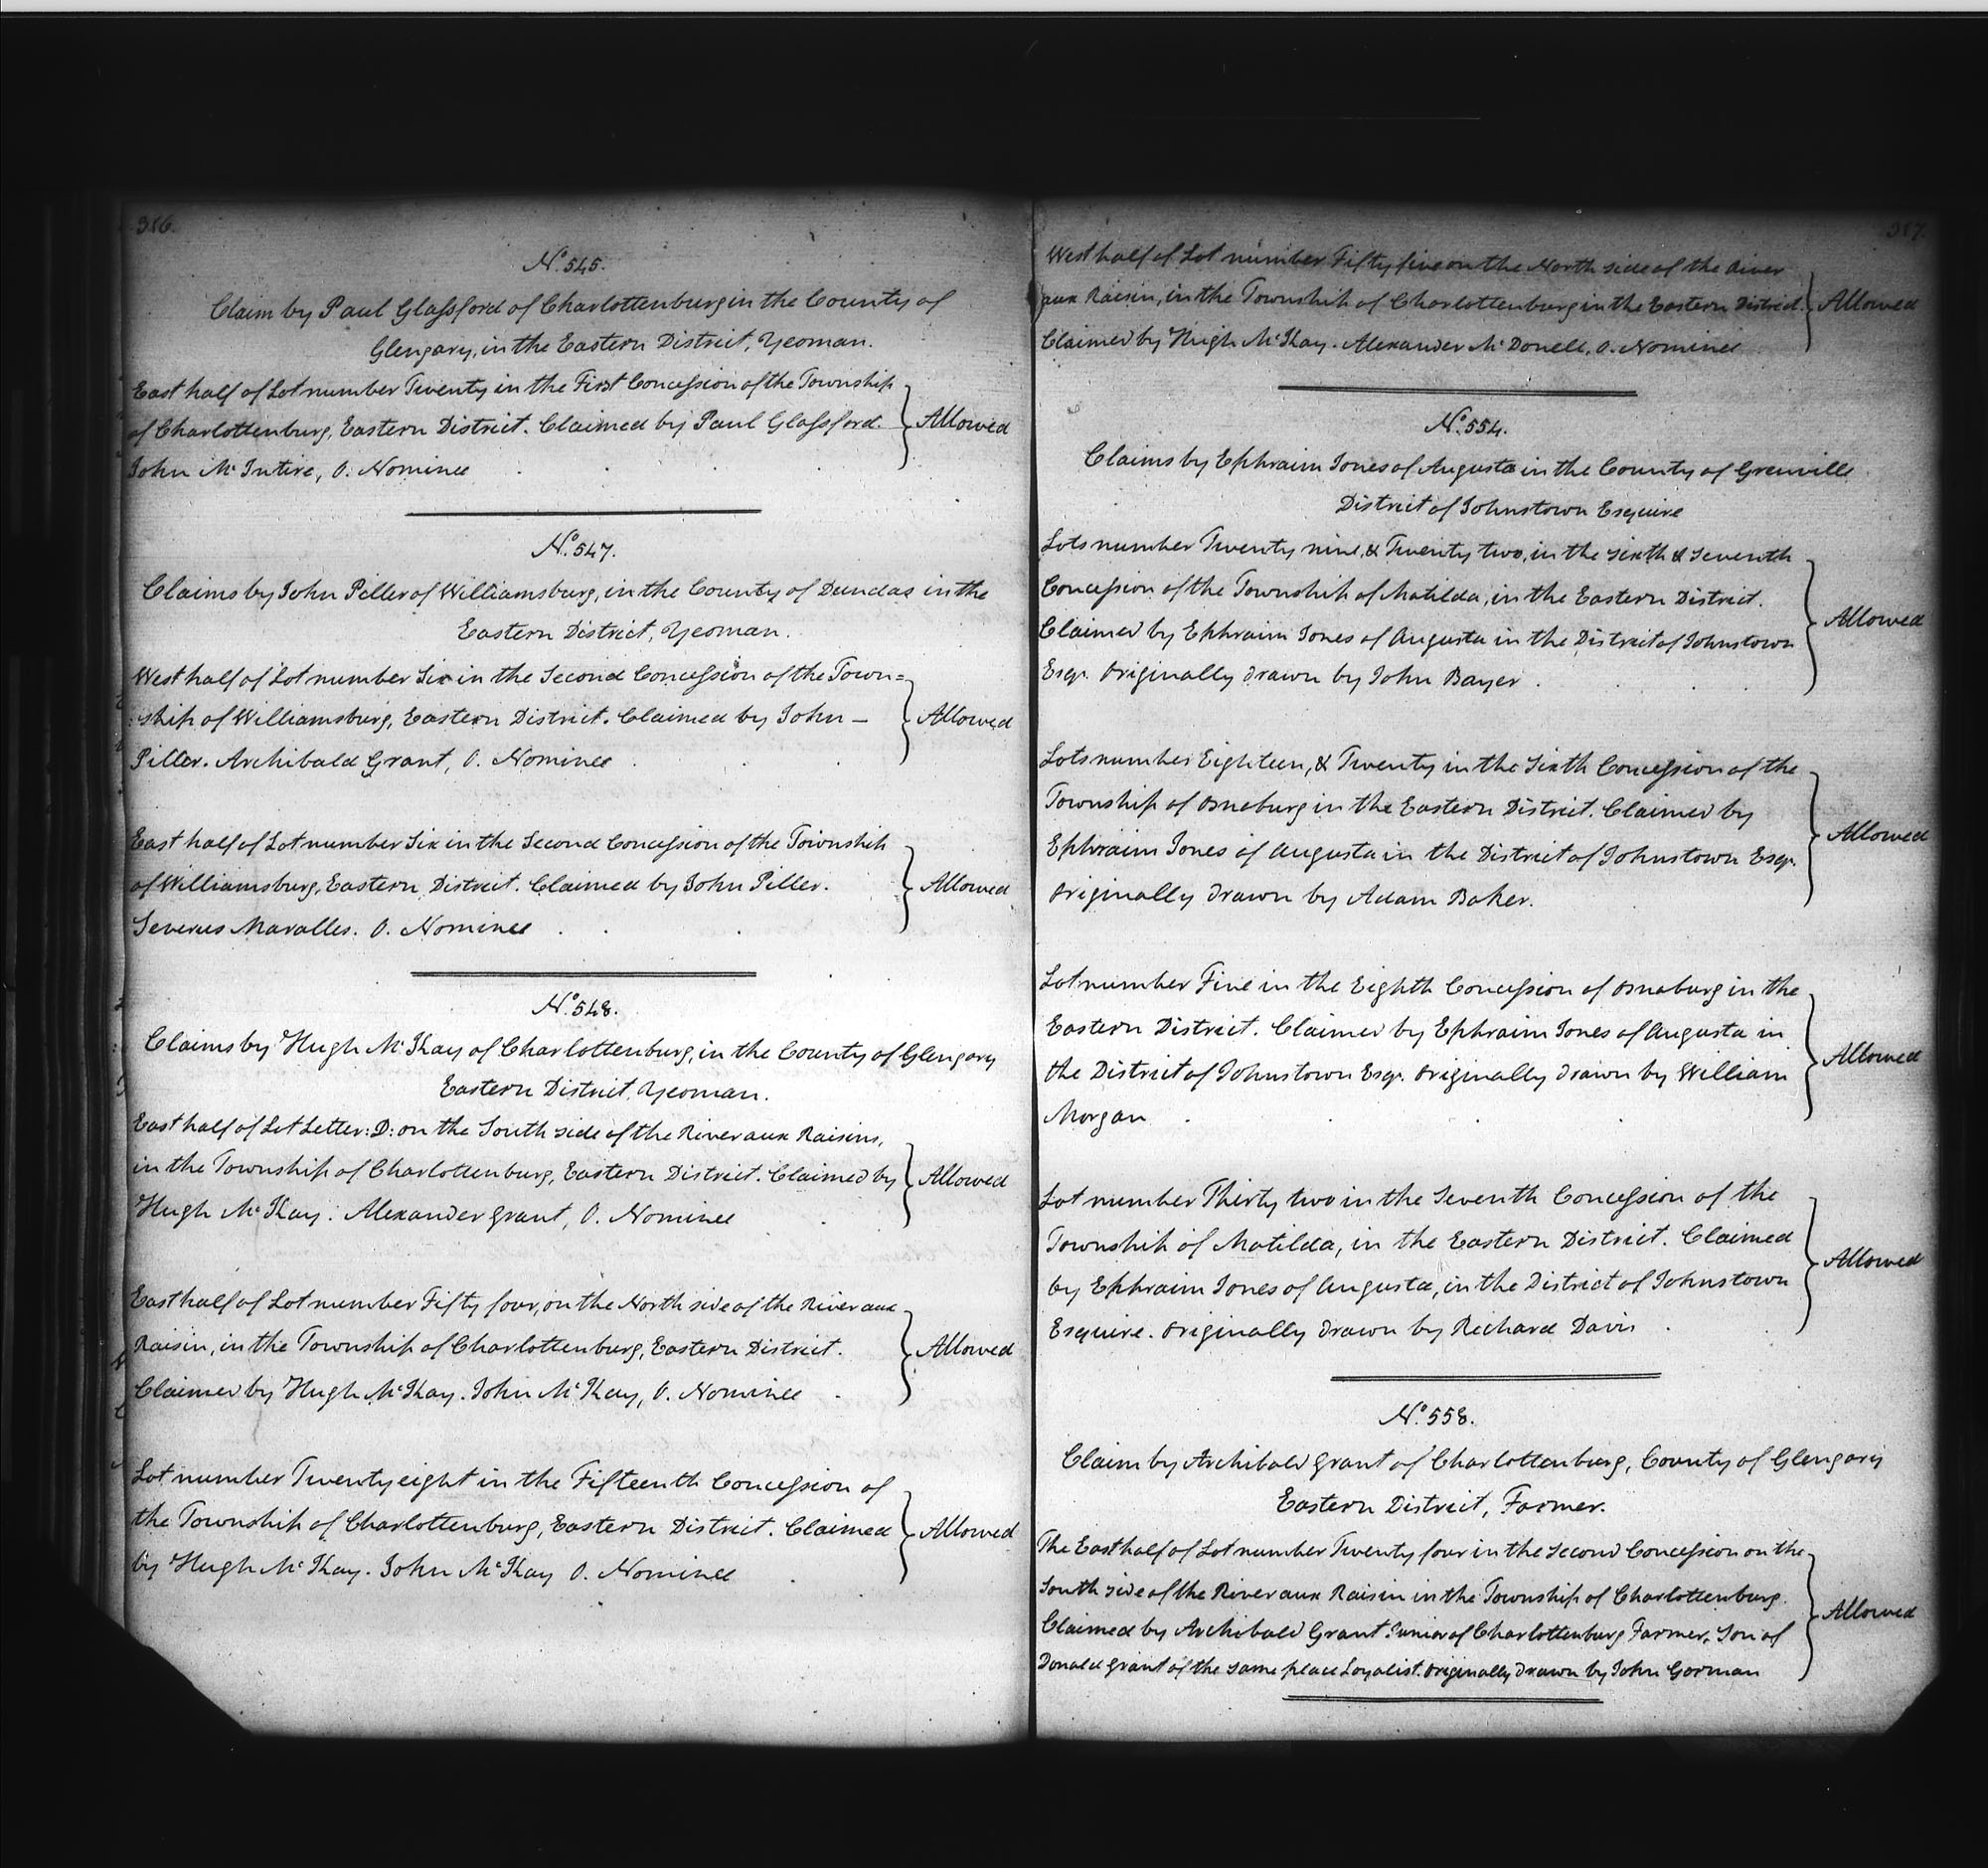 316.
No. 545.
Claim by Paul Glassford of Charlottenburg in the County of
Glengary, in the Eastern District, Yeoman.
East half of Lot number Twenty in the First Concession of the Township
of Charlottenburg, Eastern District. Claimed by Paul Glassford.
John McIntire, O. Nominee
Allowed
No. 547.
Claims by John Piller of Williamsburg, in the County of Dundas in the
Eastern District, Yeoman.
West half of Lot number Six in the Second Concession of the Town=
=ship of Williamsburg, Eastern District. Claimed by John –
Piller. Archibald Grant, O. Nominee
Allowed
East half of Lot number Six in the Second Concession of the Township
of Williamsburg, Eastern District. Claimed by John Piller.
Severus Maralles. O. Nominee
Allowed
No. 548.
Claims by Hugh McKay of Charlottenburg, in the County of Glengary
Eastern District, Yeoman.
East half of Lot Letter :D: on the South side of the River aux Raisins,
in the Township of Charlottenburg, Eastern District. Claimed by
Hugh McKay. Alexander Grant, O. Nominee
Allowed
East half of Lot number Fifty four, on the North side of the River aux
Raisin, in the Township of Charlottenburg, Eastern District.
Claimed by Hugh McKay. John McKay, O. Nominee
Allowed
Lot number Twenty eight in the Fifteenth Concession of
the Township of Charlottenburg, Eastern District. Claimed
by Hugh McKay. John McKay O. Nominee
Allowed
317.
West half of Lot number Fifty five on the North side of the River
aux Raisin, in the Township of Charlottenburg in the Eastern District.
Claimed by Hugh McKay. Alexander McDonell, O. Nominee
Allowed
No. 554.
Claims by Ephraim Jones of Augusta in the County of Grenville
District of Johnstown Esquire
Lots number Twenty nine, & Twenty two, in the Sixth & Seventh
Concession of the Township of Matilda, in the Eastern District.
Claimed by Ephraim Jones of Augusta in the District of Johnstown
Esqr. Originally drawn by John Bayer.
Allowed
Lots number Eighteen, & Twenty in the Sixth Concession of the
Township of Osnaburg in the Eastern District. Claimed by
Ephraim Jones of Augusta in the District of Johnstown Esqr.
Originally drawn by Adam Baker.
Allowed
Lot number Five in the Eighth Concession of Osnaburg in the
Eastern District. Claimed by Ephraim Jones of Augusta in
the District of Johnstown Esqr. Originally drawn by William
Morgan
Allowed
Lot number Thirty two in the Seventh Concession of the
Township of Matilda, in the Eastern District. Claimed
by Ephraim Jones of Augusta, in the District of Johnstown
Esquire. Originally drawn by Richard Davis
Allowed
No. 558.
Claim by Archibald Grant of Charlottenburg, County of Glengary
Eastern District, Farmer.
The East half of Lot number Twenty four in the Second Concession on the
South side of the River aux Raisin in the Township of Charlottenburg.
Claimed by Archibald Grant Junior of Charlottenburg Farmer, Son of
Donald Grant of the same place Loyalist. Originally drawn by John Gorman
Allowed